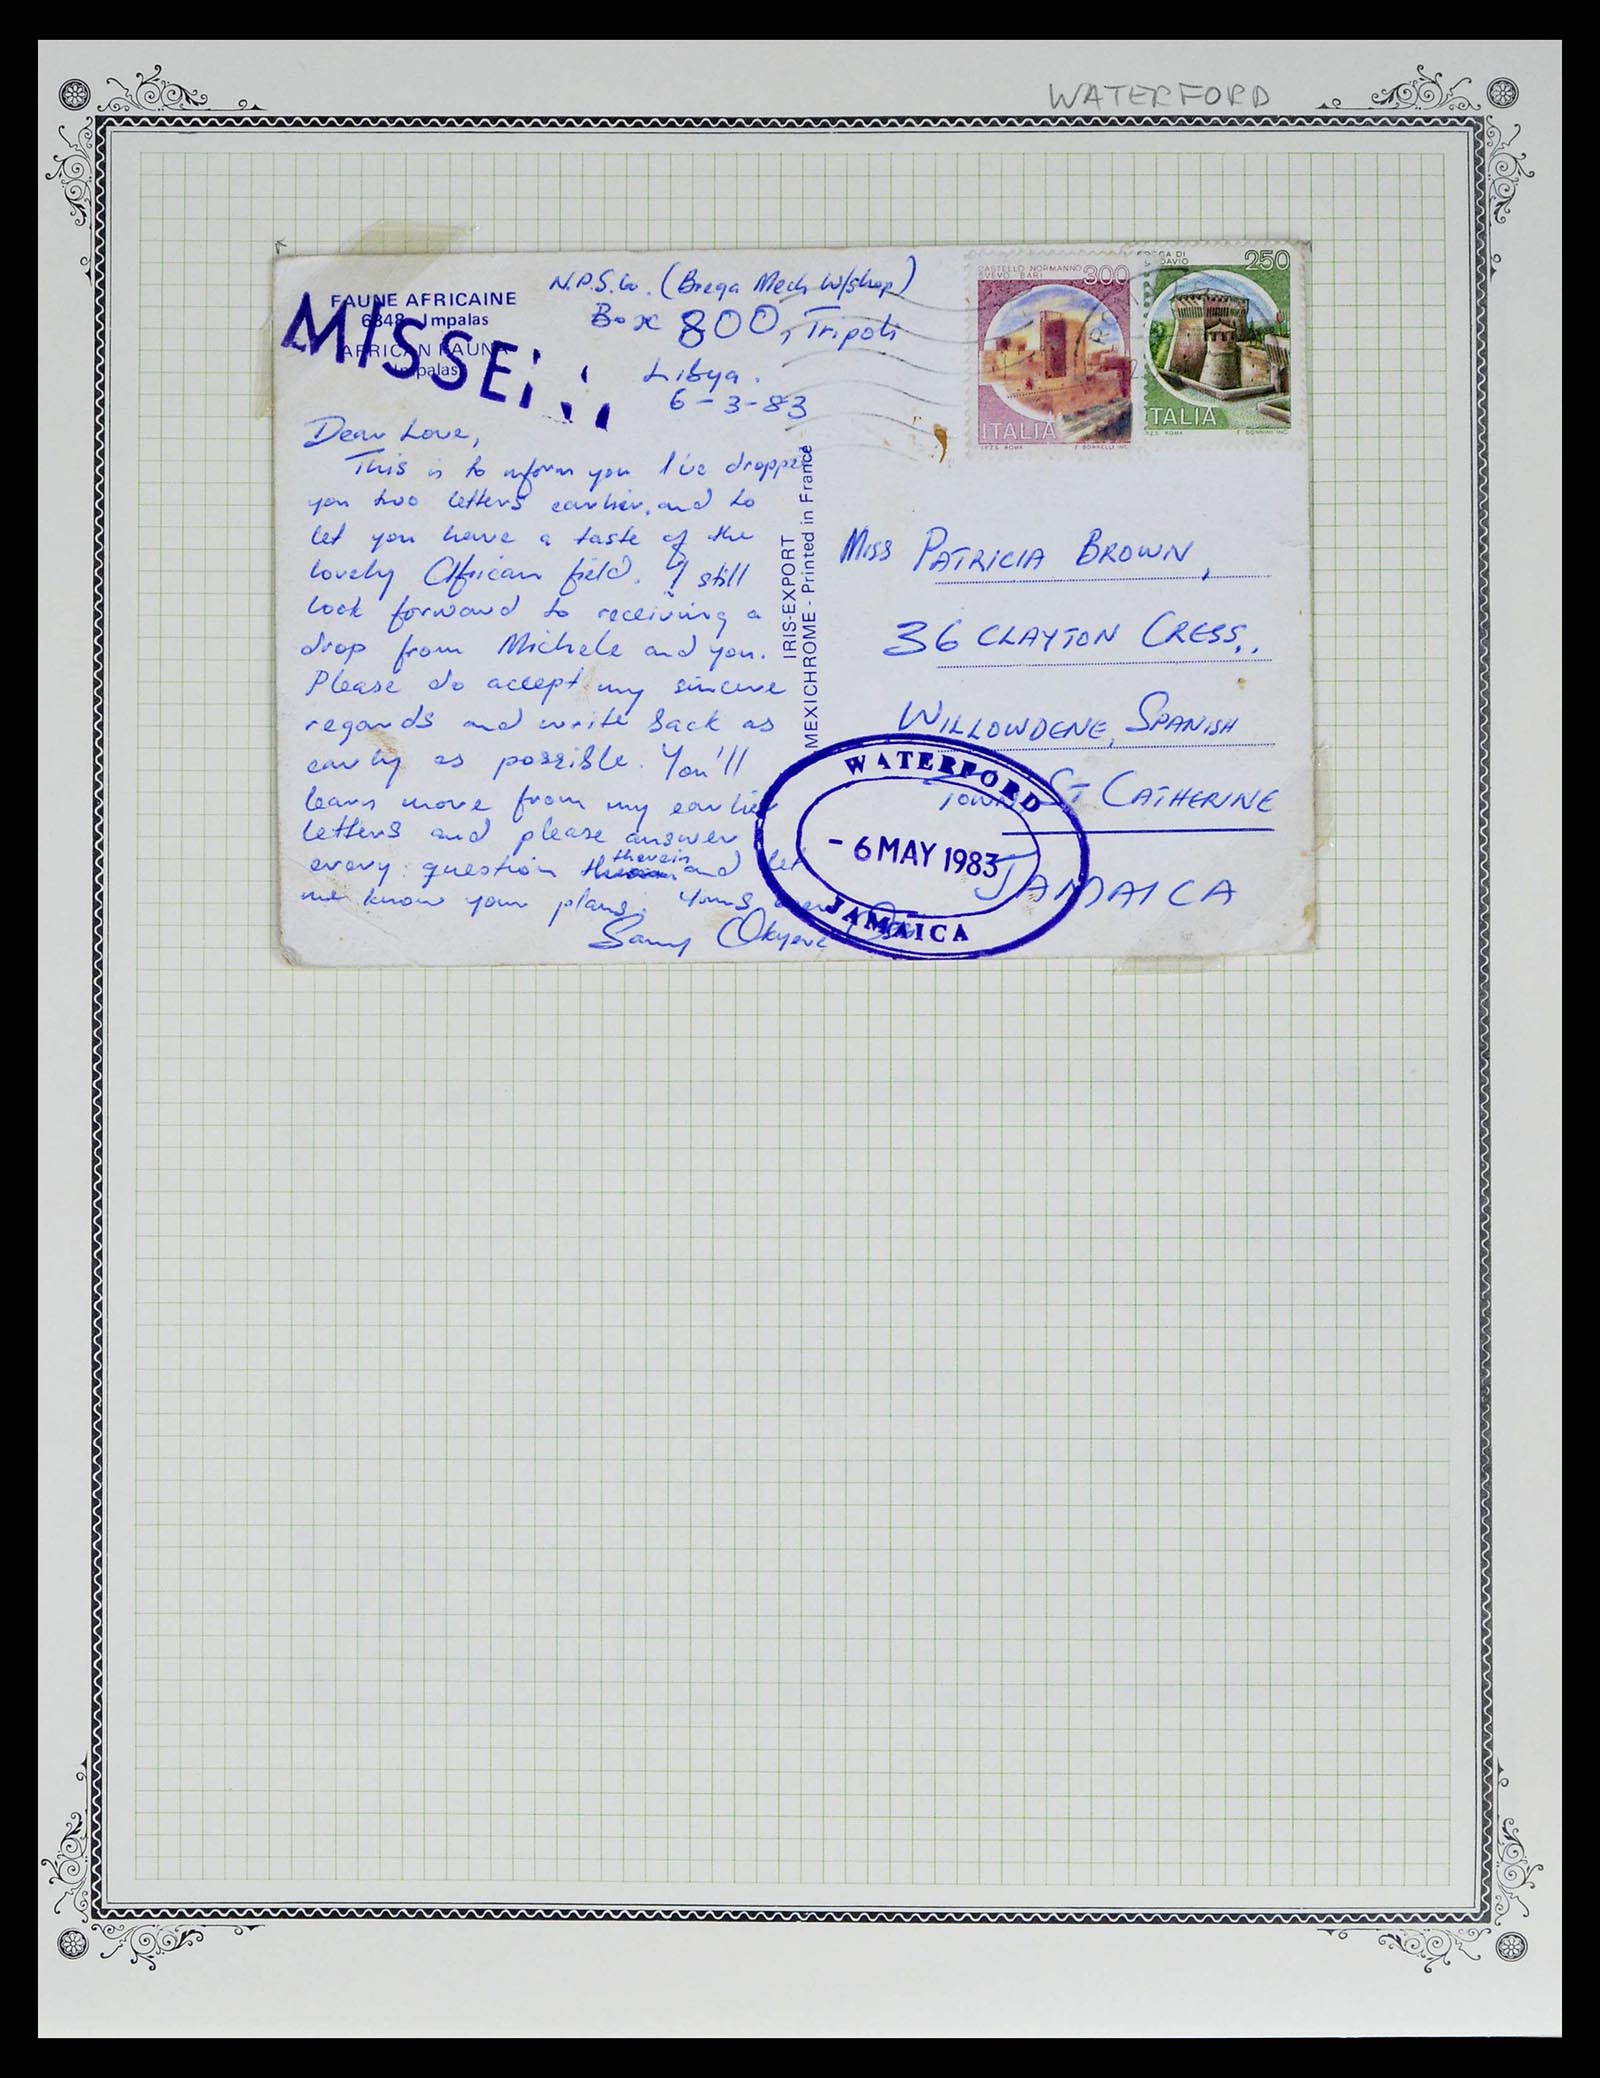 WATERFORD
FAUNE AFRICAINE
6848 - Impalas
AFRICAN FAUNA
Impalas
MISSEN
N.P.S.Co. (Brega Mech W/shop)
Box 800, Tripoli
Libya.
6-3-83
Dear Love,
This is to inform you I've dropped
you two letters earlier, and to
let you have a taste of the
lovely African field. I still
look forward to receiving a
drop from Michele and you.
Please do accept my sincere
regards and write back as
early as possible. You'll
learn more from my earlier
letters and please answer
every question therein and let
me know your plans. Yours ever
Samy Okyere
IRIS-EXPORT
MEXICHROME - Printed in France
CASTELLO NORMANNO
SVEVO - BARI
300
ITALIA
I.P.Z.S. ROMA
F. BORRELLI INC.
ROCCA DI
250
ITALIA
I.P.Z.S. ROMA
MISS PATRICIA BROWN,
36 CLAYTON CRESS.,
WILLOWDENE, SPANISH
TOWN ST CATHERINE
JAMAICA
WATERFORD
- 6 MAY 1983
JAMAICA